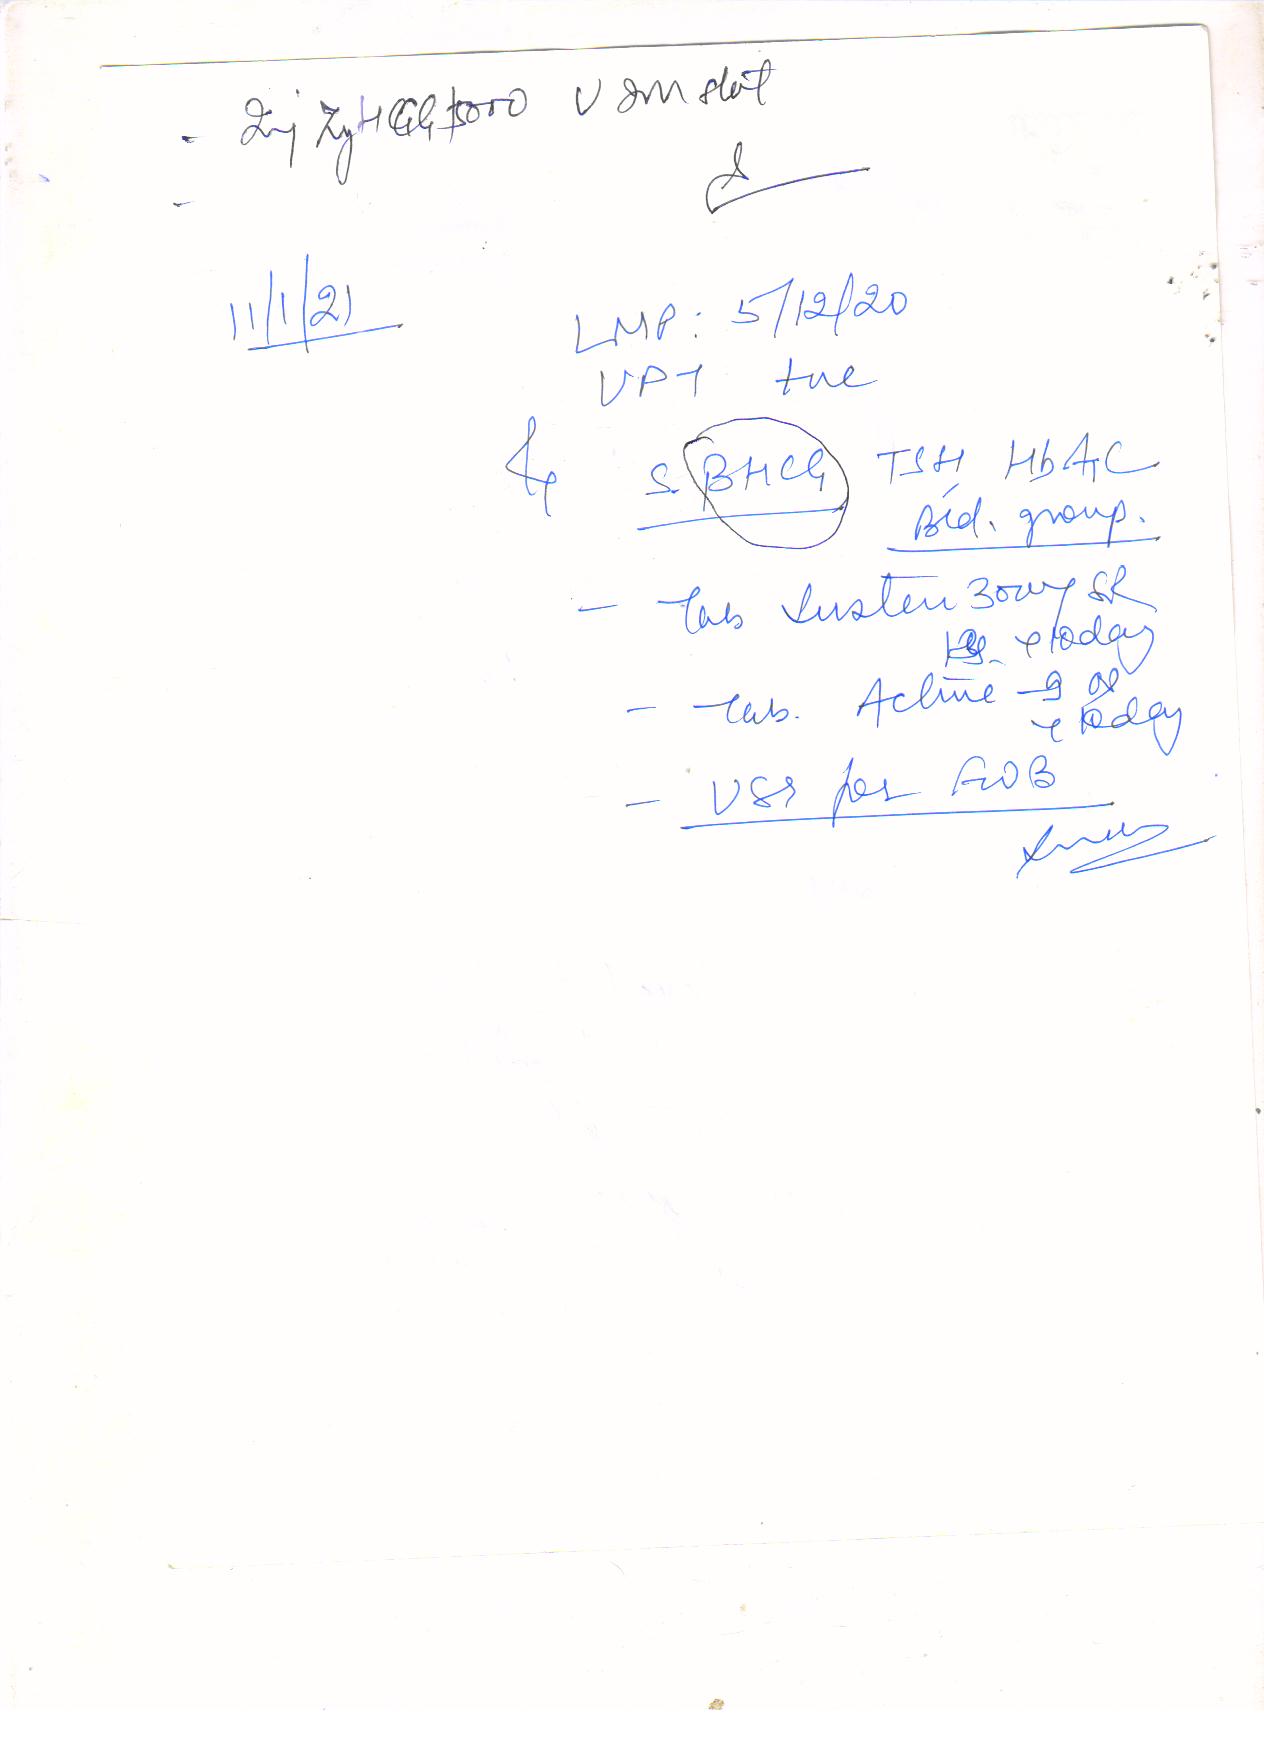 - Inj ZyHCG 5000 U IM stat
-
11/1/21
LMP: 5/12/20
UPT +ve
S. BHCG TSH HbA1C
Bld. group.
- Tab Susten 300mg SR
x today
- Tab. Active-9 OD
x today
- USG for FWB